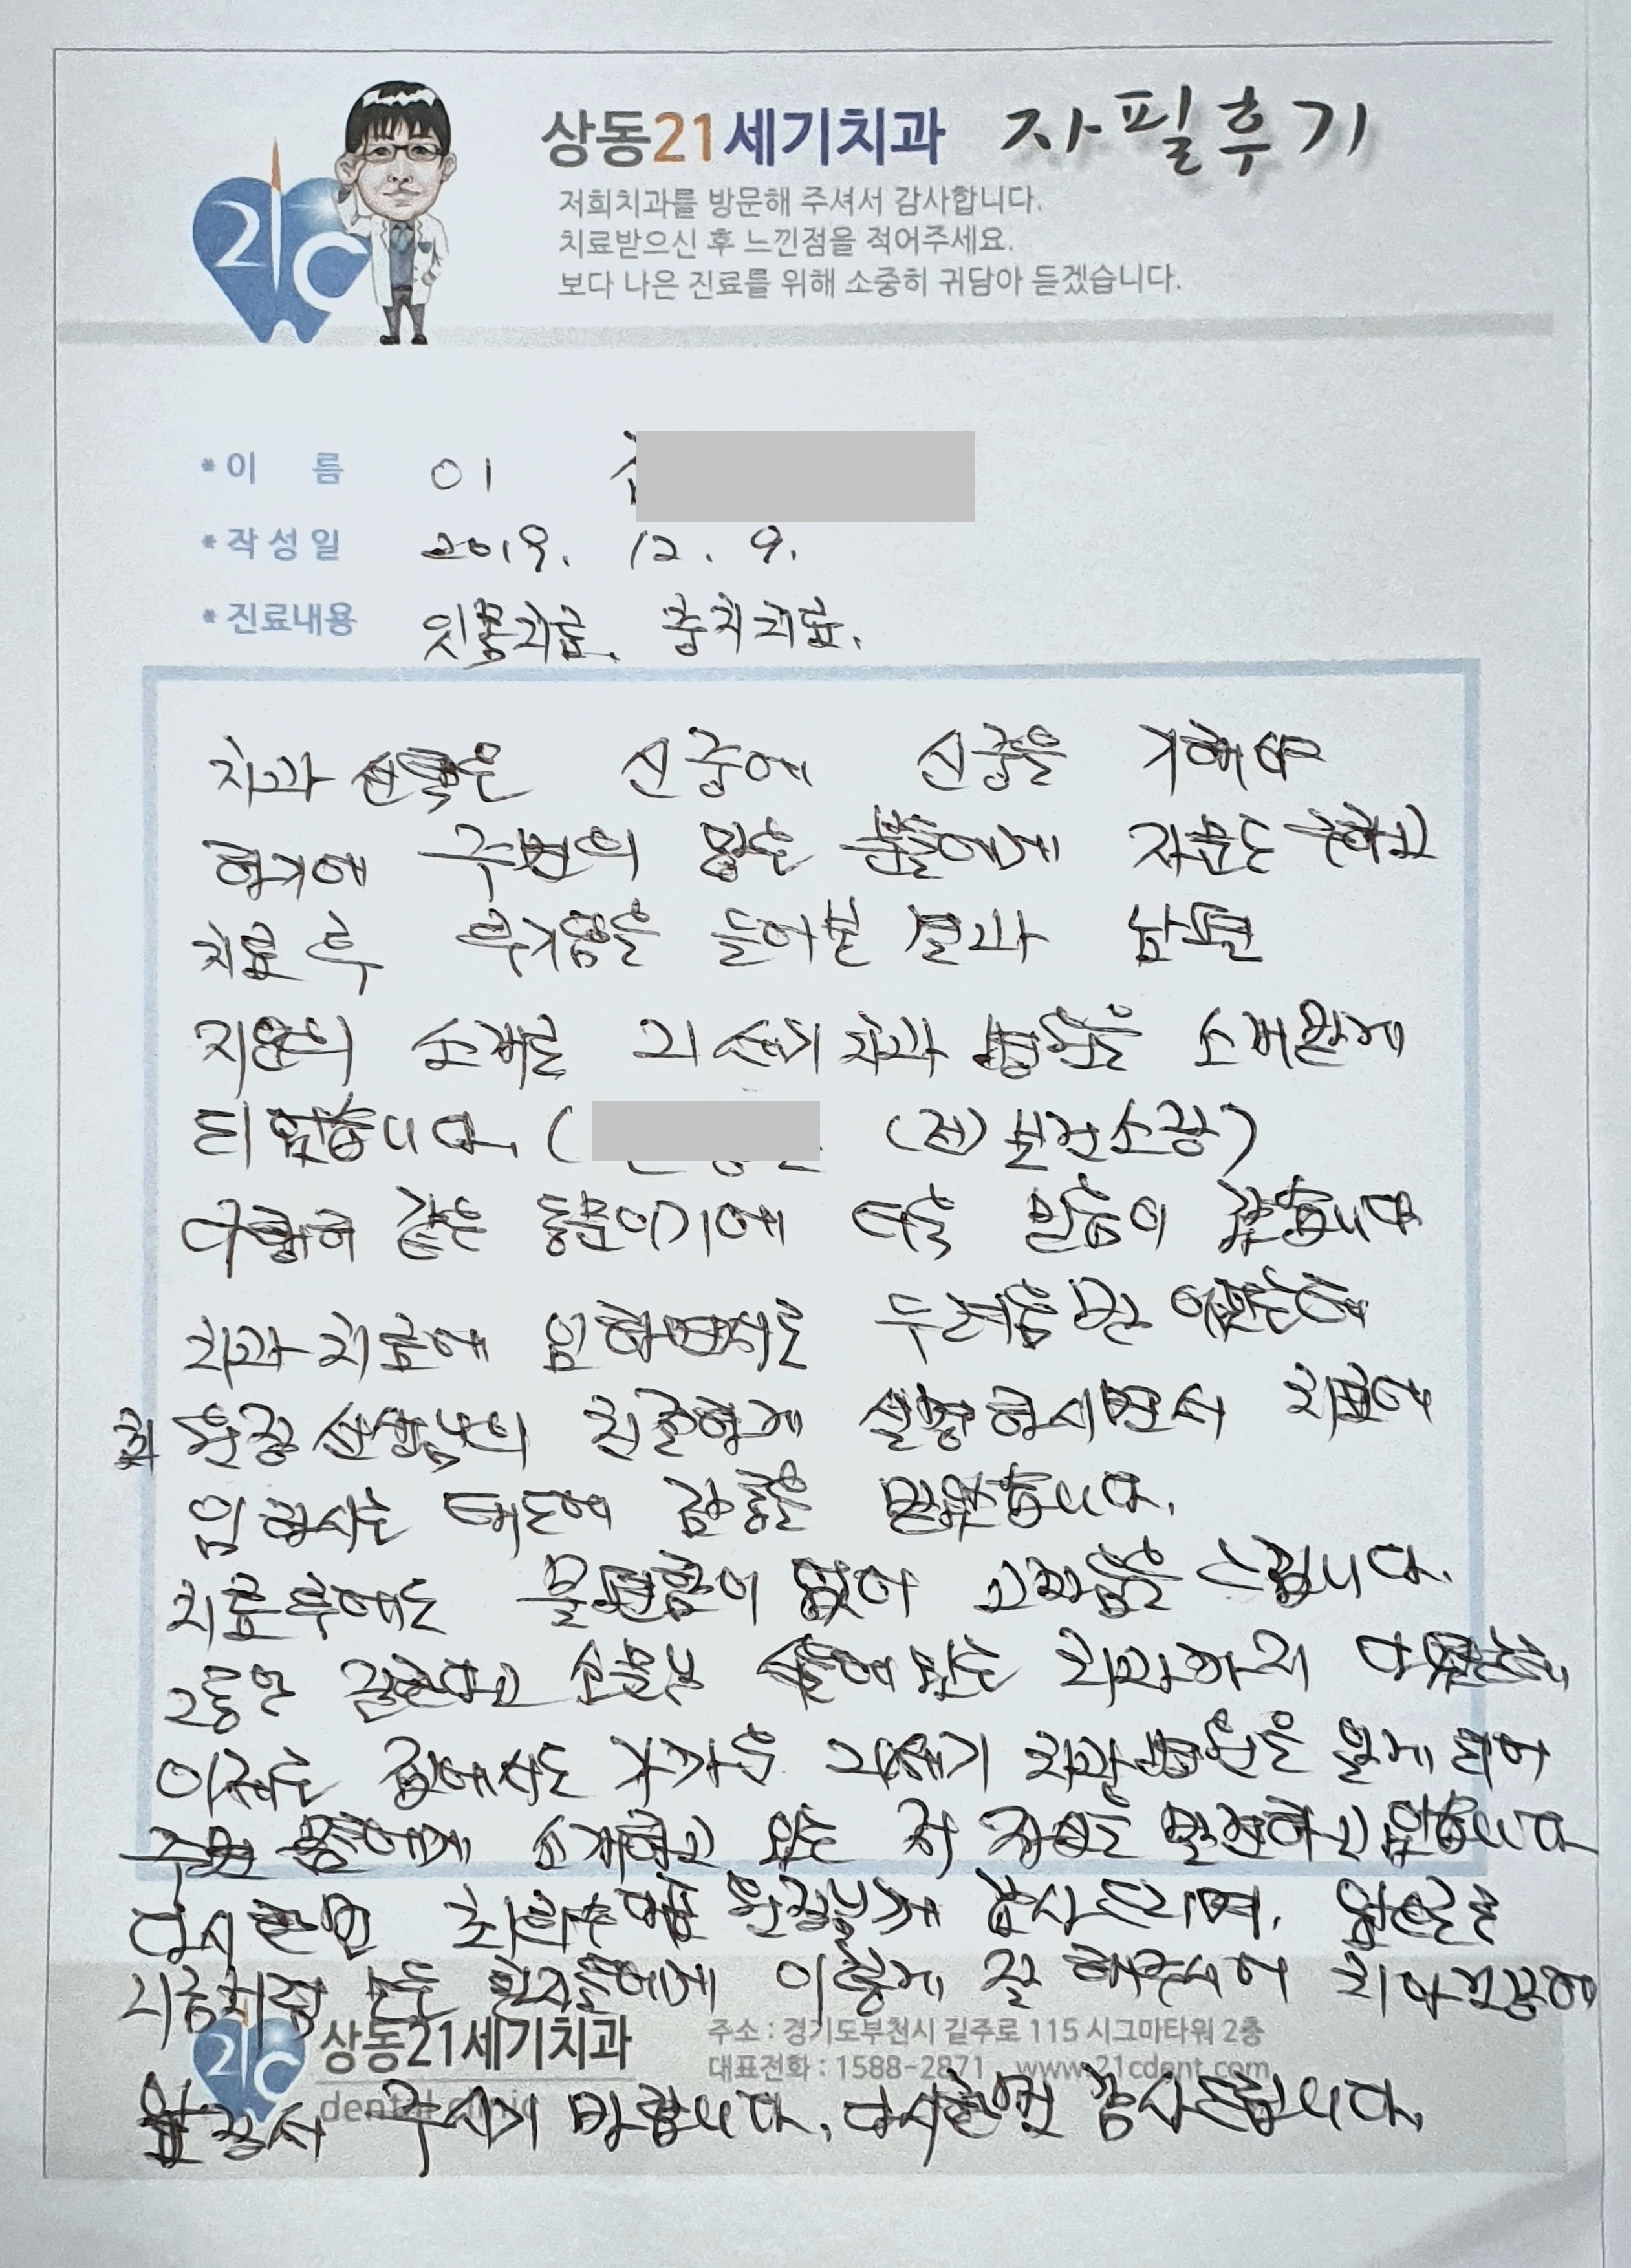 상동21세기치과 자필후기
저희치과를 방문해 주셔서 감사합니다.
치료받으신 후 느낀점을 적어주세요.
보다 나은 진료를 위해 소중히 귀담아 듣겠습니다.
*이 름 이
*작성일 2019. 12. 9.
*진료내용 잇몸치료. 충치치료.
치과 선택은 신중에 신중을 기해야
하기에 주변의 많은 분들에게 자문도 구하고
치료 후 후기담을 들어본 결과 남편
지인의 소개로 21세기 치과 병원을 소개받게
되었습니다. ( (전) 보건소장)
다행히 같은 동문이기에 더욱 믿음이 갔습니다
치과 치료에 임하면서도 두려움반 이었는데
최 원장 선생님의 친절하게 설명하시면서 치료에
임하시는 태도에 감동을 받았습니다.
치료후에도 불편함이 없어 고마움을 드립니다.
그동안 잘한다고 소문난 서울에 있는 치과까지 다녔는데,
이제는 집에서도 가까운 21세기 치과병원을 알게 되어
주변 분들에게 소개하고 있는 저 자신도 발견하고 있습니다
다시 한번 최희수 대표 원장님께 감사드리며, 앞으로도
지금처럼 모든 환자들에게 이렇게 잘 해주시어 치아건강에
상동21세기치과 주소 : 경기도부천시 길주로 115 시그마타워 2층
dental clinic 대표전화 : 1588-2871 www.21cdent.com
앞장서 주시기 바랍니다. 다시한번 감사드립니다.